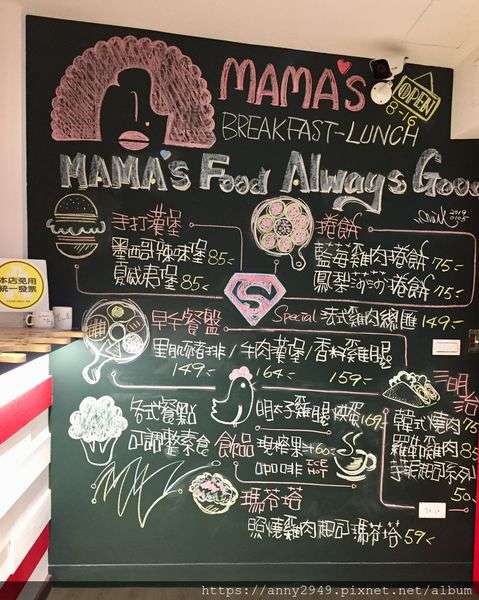 MAMA'S
OPEN
8-16
BREAKFAST-LUNCH
MAMA'S Food Always Good
2019
手打漢堡
墨西哥辣味堡 85.-
夏威夷堡 85.-
捲餅
藍莓雞肉捲餅 75.-
鳳梨莎莎捲餅 75.-
本店免用
統一發票
S
早午餐盤
Special 法式雞肉總匯 149.-
里肌豬排/牛肉漢堡/香料雞腿
149.- 164.- 159.-
三明治
韓式燒肉 75
羅勒雞肉 85
50.-
各式餐點
可調整素食
明太子雞腿 169.-
飲品 現榨果汁 60.-
咖啡 ICE HOT
瑪芬塔
照燒雞肉起司瑪芬塔 59.-
https://anny2949.pixnet.net/album